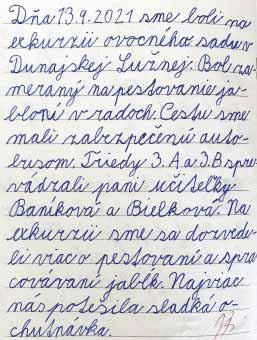 Dňa 13.9.2021 sme boli na
exkurzii ovocného sadu v
Dunajskej Lužnej. Bol za-
meraný na pestovanie ja-
bloní v radoch. Cestu sme
mali zabezpečenú auto-
busom. Triedy 3. A a 3. B spre-
vádzali pani učiteľky
Baníková a Bielková. Na
exkurzii sme sa dozvede-
li viac o pestovaní a spra-
covávaní jabĺk. Najviac
nás potešila sladká o-
chutnávka.